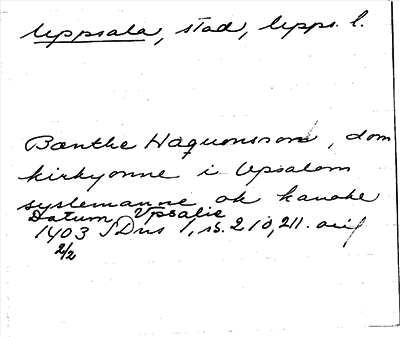 Uppsala, stad, Upps. l.
Bænthe Haquonsson, dom
kirkyonne i Upsalom
syslemanne ok kanoke
Datum Upsalie
1403 SDns 1, s. 210, 211.
2/2